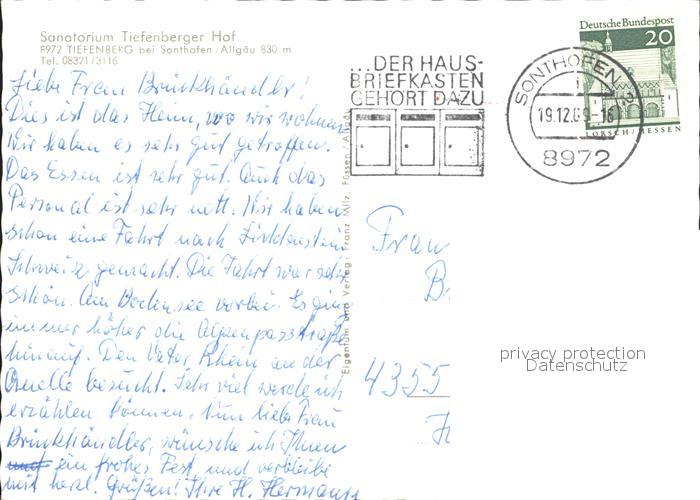 Sanatorium Tiefenberger Hof
8972 TIEFENBERG bei Sonthofen/Allgäu 830 m
Tel. 08321/3116
Liebe Frau Brinkhändler!
Dies ist das Heim, wo wir wohnen
Wir haben es sehr gut getroffen.
Das Essen ist sehr gut. Auch das
Personal ist sehr nett. Wir haben
schon eine Fahrt nach Lichtenstein
Schweiz gemacht. Die Fahrt war sehr
schön. Am Bodensee vorbei. Es ging
immer höher die Alpenpassstraße
hinauf. Den Vater Rhein an der
Quelle besucht. Sehr viel werde ich
erzählen können. Nun liebe Frau
Brinkhändler, wünsche ich Ihnen
ein frohes Fest, und verbleibe
mit herzl. Grüßen! Ihre H. Hermanns
Eigentum und Verlag: Franz Milz, Füssen/Allgäu
...DER HAUS-
BRIEFKASTEN
GEHÖRT DAZU
SONTHOFEN
19.12.69-16
8972
Deutsche Bundespost
20
LORSCH/HESSEN
Frau
B
4355
privacy protection
Datenschutz